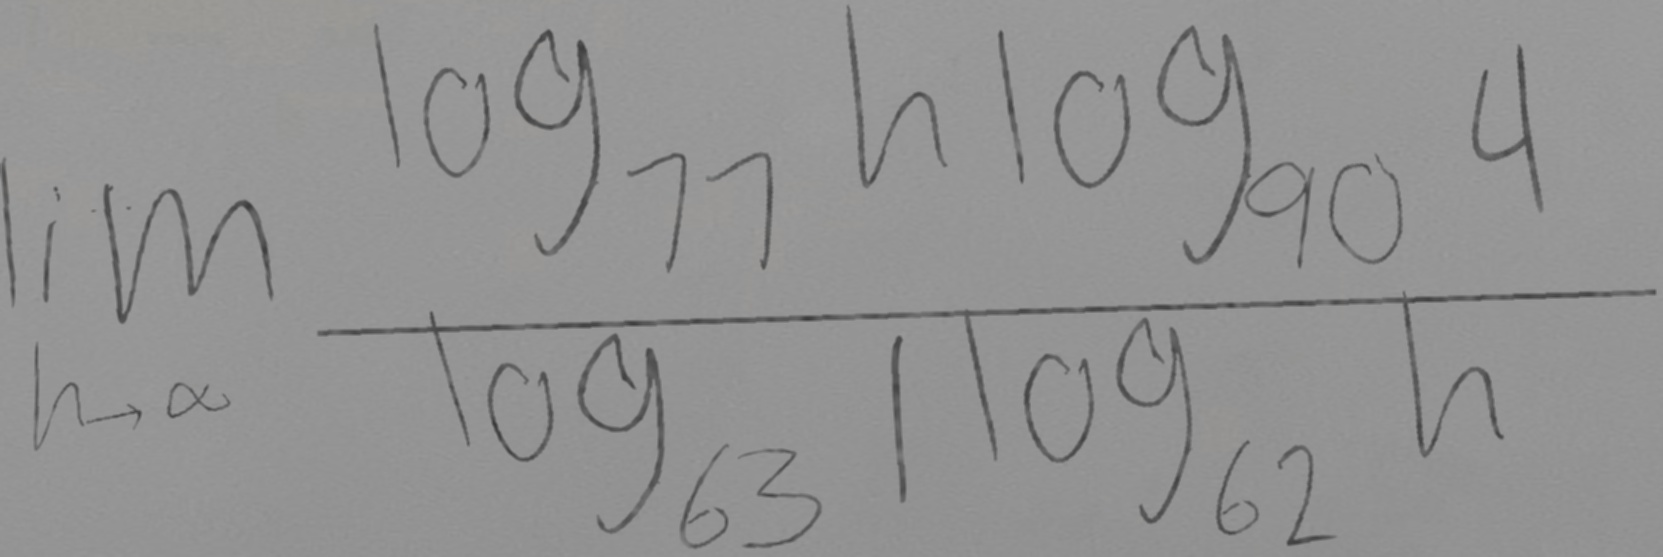 lim h→∞ log_77 h log_90 4 / log_63 1 log_62 h